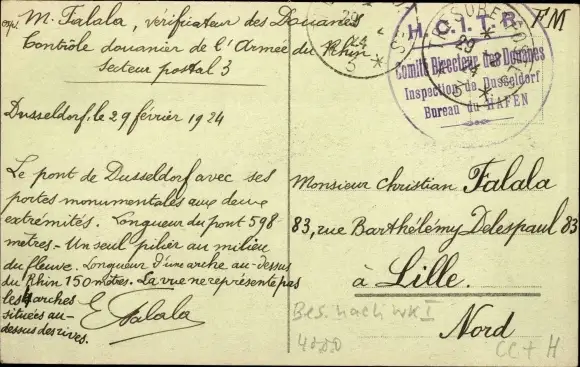 exp. M. Falala, vérificateur des Douanes
Contrôle douanier de l'Armée du Rhin
secteur postal 3
Dusseldorf, le 29 février 1924
Le pont de Dusseldorf avec ses
portes monumentales aux deux
extrémités. Longueur du pont 598
mètres - Un seul pilier au milieu
du fleuve. Longueur d'une arche au-dessus
du Rhin 150 mètres. La vue ne représente pas
les 4 arches
situées au-
dessus des rives.
E Falala
H.C.I.T.R.
Comité Directeur des Douanes
Inspection de Dusseldorf
Bureau du HAFEN
FM
Monsieur Christian Falala
83, rue Barthélémy Delespaul 83
à Lille.
Nord
Bes. nach WK I
CC + H